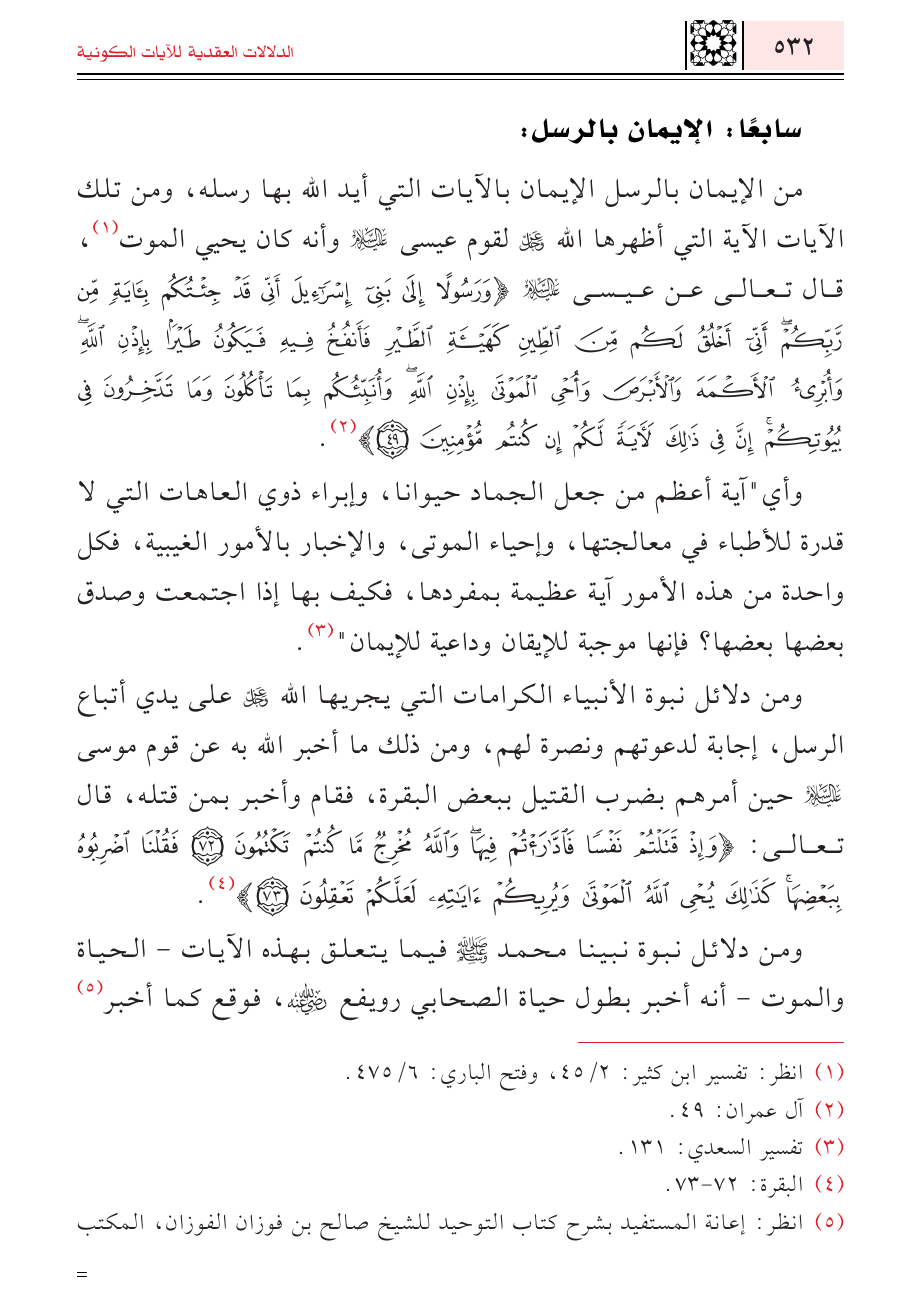 ٥٣٢
الدلالات العقدية للآيات الكونية
سابعًا: الإيمان بالرسل:
من الإيمان بالرسل الإيمان بالآيات التي أيد الله بها رسله، ومن تلك
الآيات الآية التي أظهرها الله ﷿ لقوم عيسى ﵇ وأنه كان يحيي الموت(١)،
قال تعالى عن عيسى ﵇ ﴿وَرَسُولًا إِلَىٰ بَنِىٓ إِسْرَٰٓءِيلَ أَنِّى قَدْ جِئْتُكُم بِـَٔايَةٍ مِّن
رَّبِّكُمْ ۖ أَنِّىٓ أَخْلُقُ لَكُم مِّنَ ٱلطِّينِ كَهَيْـَٔةِ ٱلطَّيْرِ فَأَنفُخُ فِيهِ فَيَكُونُ طَيْرًۢا بِإِذْنِ ٱللَّهِ ۖ
وَأُبْرِئُ ٱلْأَكْمَهَ وَٱلْأَبْرَصَ وَأُحْىِ ٱلْمَوْتَىٰ بِإِذْنِ ٱللَّهِ ۖ وَأُنَبِّئُكُم بِمَا تَأْكُلُونَ وَمَا تَدَّخِرُونَ فِى
بُيُوتِكُمْ ۚ إِنَّ فِى ذَٰلِكَ لَـَٔايَةً لَّكُمْ إِن كُنتُم مُّؤْمِنِينَ ٤٩﴾(٢).
وأي"آية أعظم من جعل الجماد حيوانا، وإبراء ذوي العاهات التي لا
قدرة للأطباء في معالجتها، وإحياء الموتى، والإخبار بالأمور الغيبية، فكل
واحدة من هذه الأمور آية عظيمة بمفردها، فكيف بها إذا اجتمعت وصدق
بعضها بعضها؟ فإنها موجبة للإيقان وداعية للإيمان"(٣).
ومن دلائل نبوة الأنبياء الكرامات التي يجريها الله ﷿ على يدي أتباع
الرسل، إجابة لدعوتهم ونصرة لهم، ومن ذلك ما أخبر الله به عن قوم موسى
﵇ حين أمرهم بضرب القتيل ببعض البقرة، فقام وأخبر بمن قتله، قال
تعالى: ﴿وَإِذْ قَتَلْتُمْ نَفْسًا فَٱدَّٰرَْٰٔتُمْ فِيهَا ۖ وَٱللَّهُ مُخْرِجٌ مَّا كُنتُمْ تَكْتُمُونَ ٧٢ فَقُلْنَا ٱضْرِبُوهُ
بِبَعْضِهَا ۚ كَذَٰلِكَ يُحْىِ ٱللَّهُ ٱلْمَوْتَىٰ وَيُرِيكُمْ ءَايَٰتِهِۦ لَعَلَّكُمْ تَعْقِلُونَ ٧٣﴾(٤).
ومن دلائل نبوة نبينا محمد ﷺ فيما يتعلق بهذه الآيات - الحياة
والموت - أنه أخبر بطول حياة الصحابي رويفع ﵁، فوقع كما أخبر(٥)
(١) انظر: تفسير ابن كثير: ٢/ ٤٥، وفتح الباري: ٦/ ٤٧٥.
(٢) آل عمران: ٤٩.
(٣) تفسير السعدي: ١٣١.
(٤) البقرة: ٧٢-٧٣.
(٥) انظر: إعانة المستفيد بشرح كتاب التوحيد للشيخ صالح بن فوزان الفوزان، المكتب
=